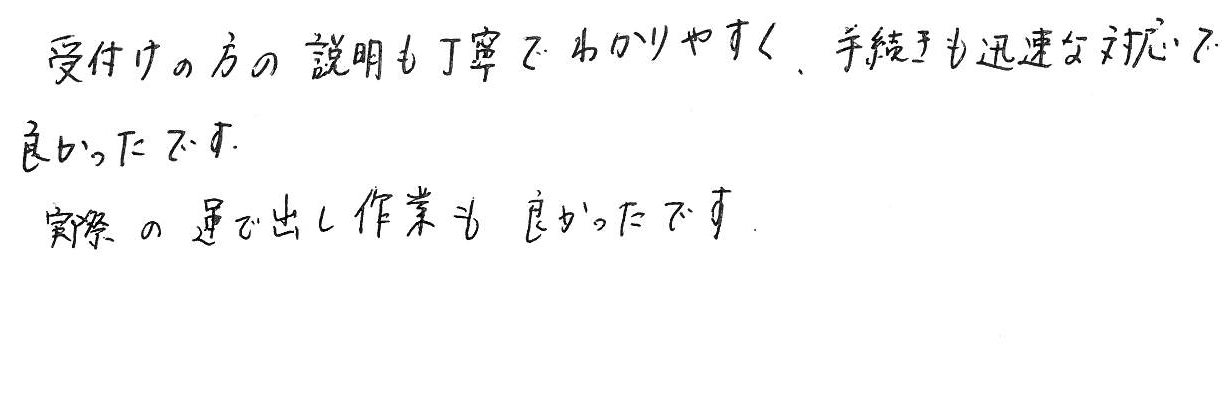 受付けの方の説明も丁寧でわかりやすく、手続きも迅速な対応で
良かったです.
実際の運で出し作業も良かったです.